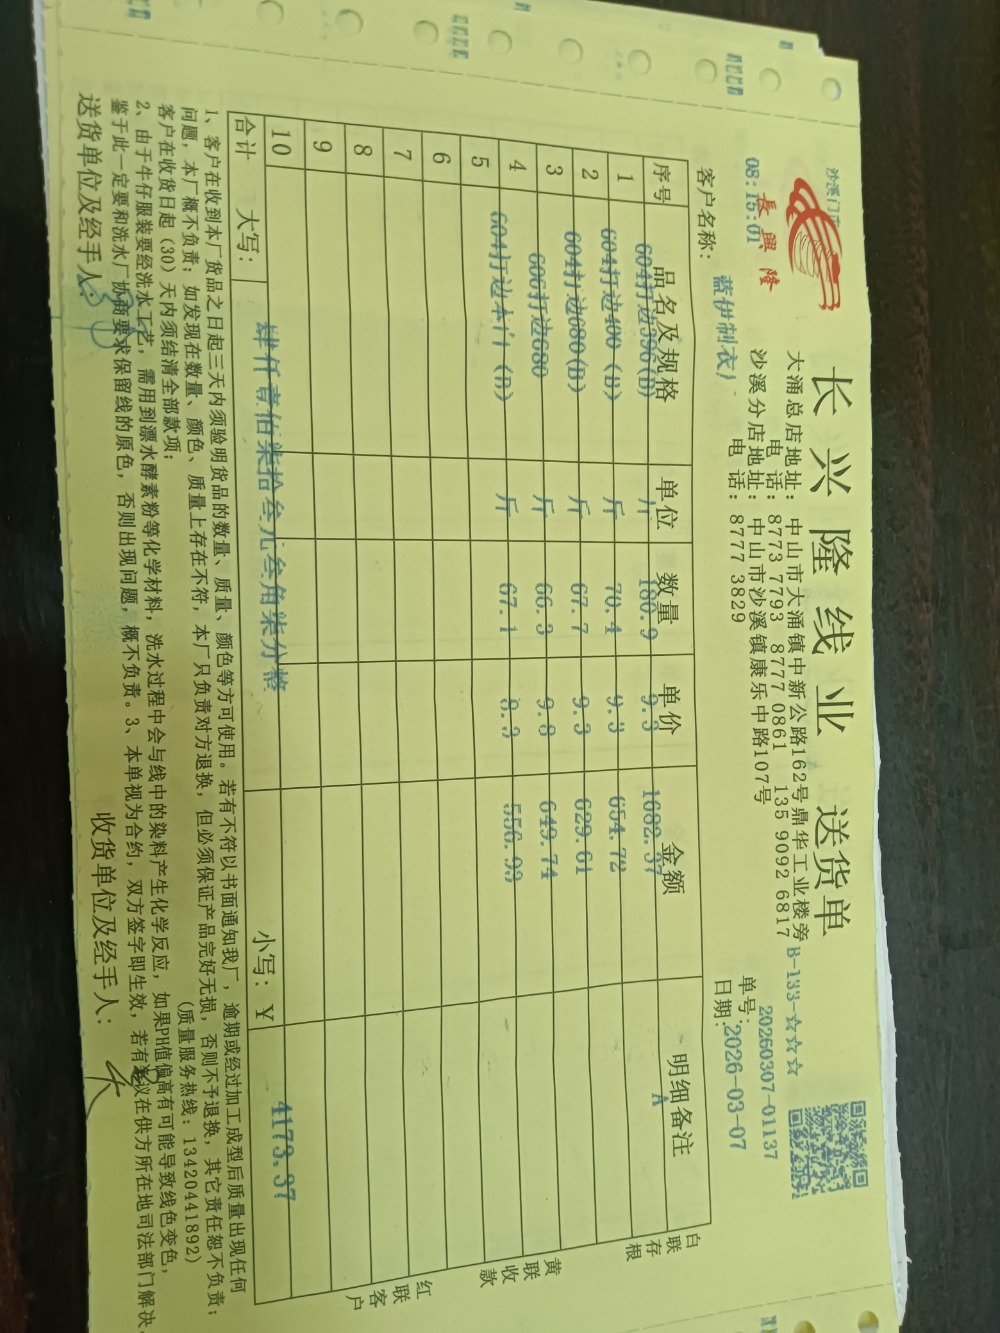 长兴隆线业 送货单
長興隆
08:15:01
大涌总店地址：中山市大涌镇中新公路162号鼎华工业楼旁
电 话：8773 7793 8777 0861 135 9092 6817
沙溪分店地址：中山市沙溪镇康乐中路107号
电 话：8777 3829
B-133-☆☆☆
单号: 20260307-01137
日期: 2026-03-07
客户名称：蓝伊制衣厂
序号 品名及规格 单位 数量 单价 金额 明细备注
1 604打边396(B) 斤 180.9 9.3 1682.37 A
2 604打边400(B) 斤 70.4 9.3 654.72
3 604打边680(B) 斤 67.7 9.3 629.61
4 606打边680 斤 66.3 9.8 649.74
5 604打边本厂(B) 斤 67.1 8.3 556.93
6
7
8
9
10
合计 大写：肆仟壹佰柒拾叁元叁角柒分整 小写：￥ 4173.37
白联存根
黄联收款
红联客户
1、客户在收到本厂货品之日起三天内须验明货品的数量、质量、颜色等方可使用。若有不符以书面通知我厂，逾期或经过加工成型后质量出现任何
问题，本厂概不负责；如发现在数量、颜色、质量上存在不符，本厂只负责对方退换，但必须保证产品完好无损，否则不予退换，其它责任恕不负责；
客户在收货日起（30）天内须结清全部款项； （质量服务热线：13420441892）
2、由于牛仔服装要经洗水工艺，需用到漂水酵素粉等化学材料，洗水过程中会与线中的染料产生化学反应，如果PH值偏高有可能导致线色变色，
鉴于此一定要和洗水厂协商要求保留线的原色，否则出现问题，概不负责。3、本单视为合约，双方签字即生效，若有争议在供方所在地司法部门解决。
送货单位及经手人： 收货单位及经手人：